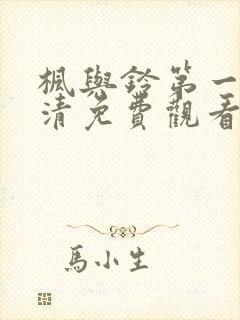 楓與鈴第一
清免費觀看
馬小生